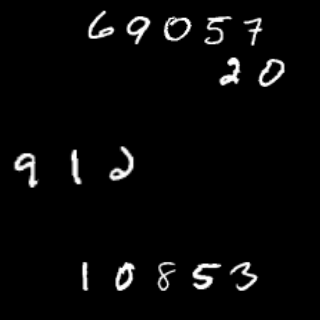 69057
20
912
10853